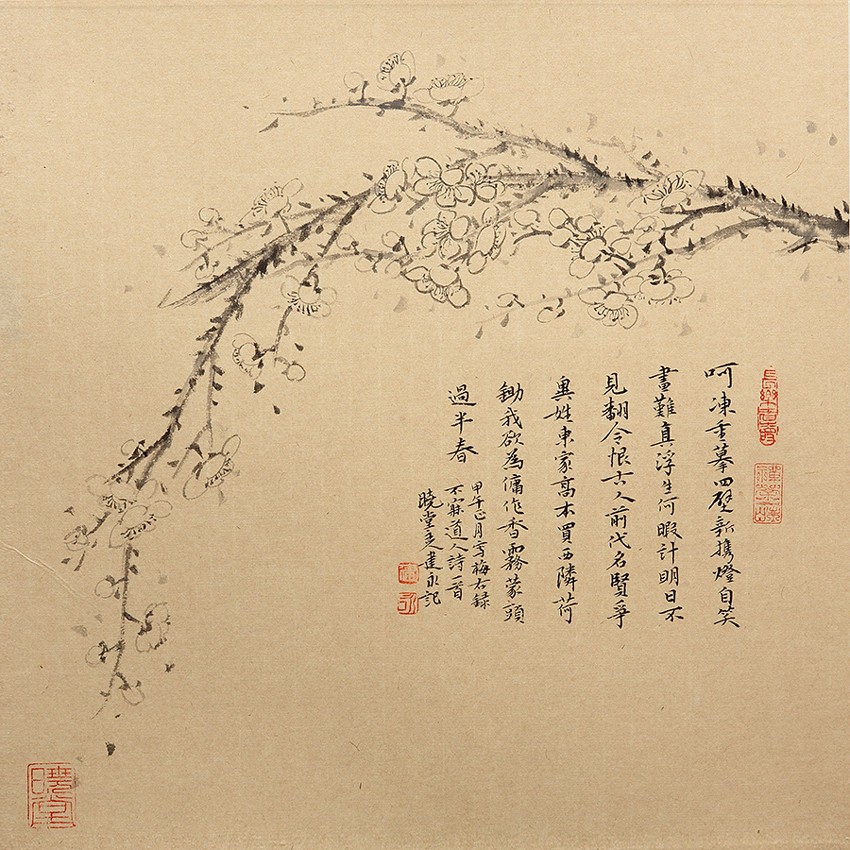 呵凍重摹四壁新携燈自笑
畫難真浮生何暇計明日不
見翻令恨古人前代名賢爭
異姓東家高本買西隣荷
鋤我欲為傭作香霧蒙頭
過半春
甲午正月寫梅右録
不寐道人詩一首
曉堂建永記
曉堂